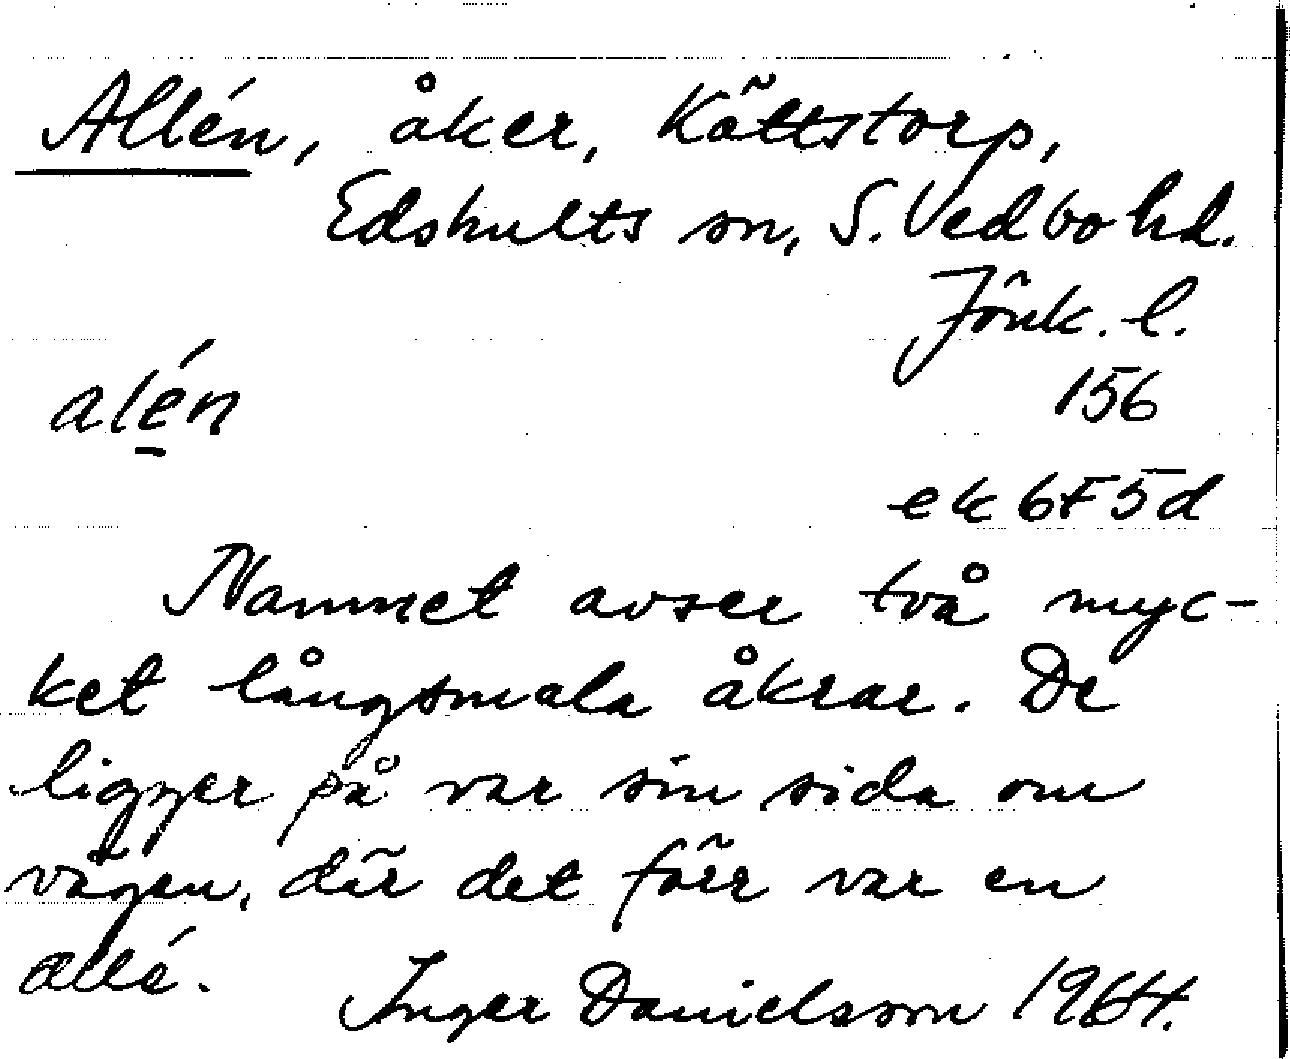 Allén, åker, Kättstorp,
Edshults sn, S. Vedbo hd.
Jönk. l.
alén
156
ek 6F5d
Namnet avser två myc-
ket långsmala åkrar. De
ligger på var sin sida om
vägen, där det förr var en
allé.
Inger Danielsson 1964.